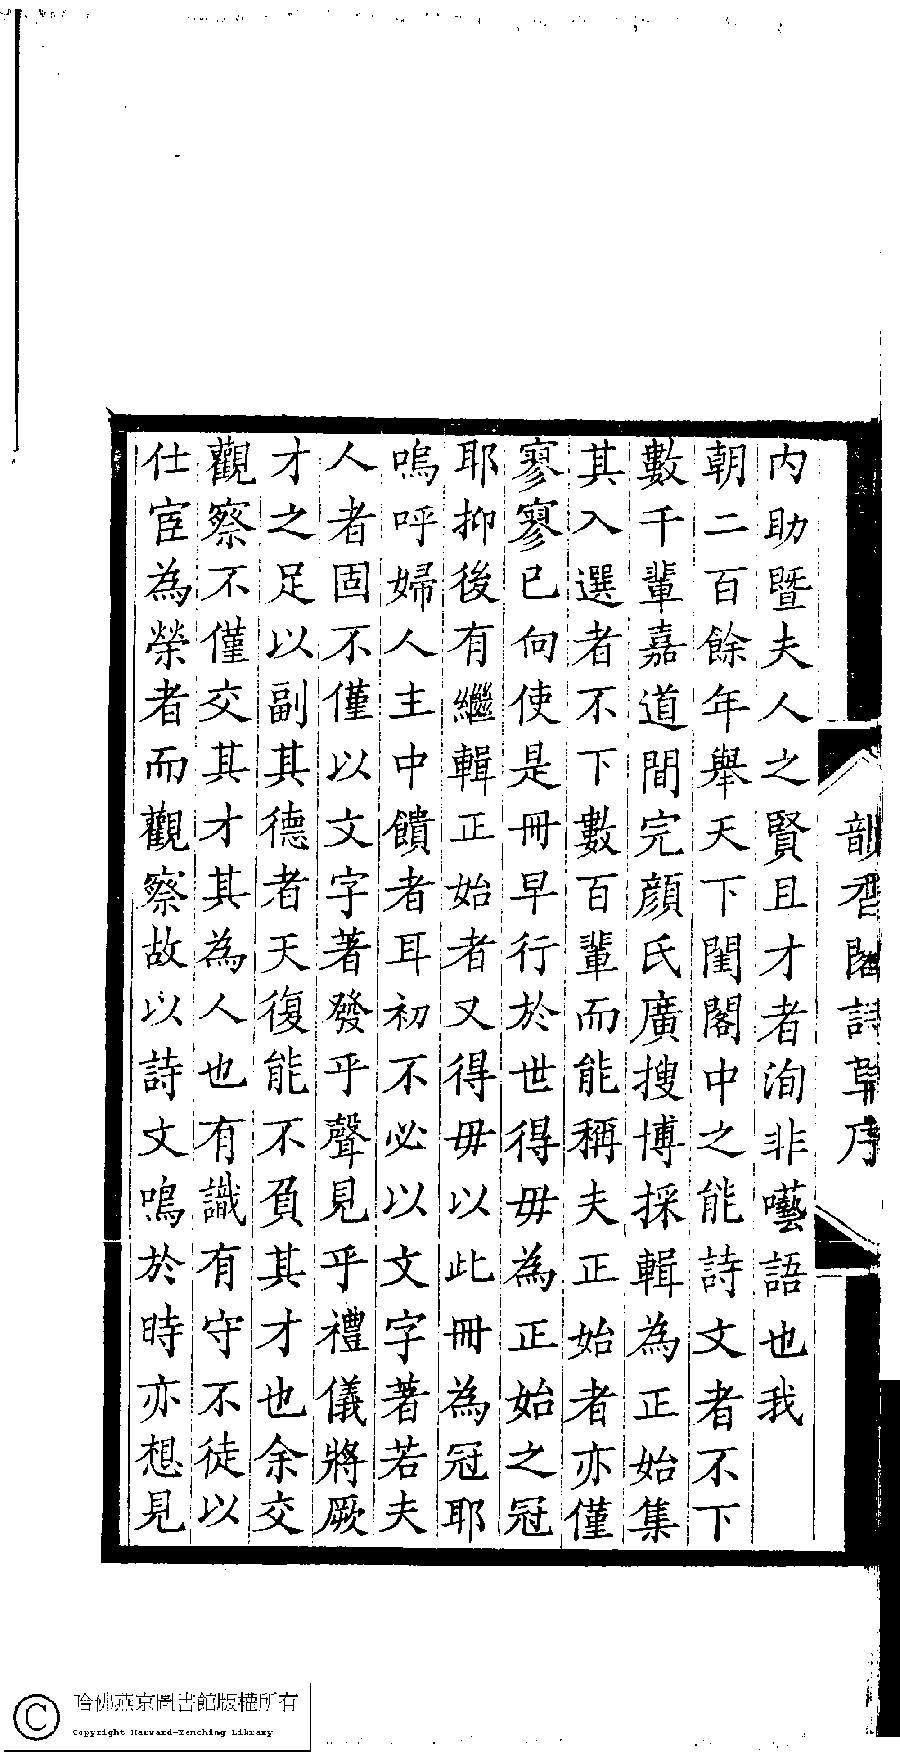 韻香閣詩草序
內助暨夫人之賢且才者洵非囈語也我
朝二百餘年舉天下閨閣中之能詩文者不下
數千輩嘉道間完顏氏廣搜博採輯為正始集
其入選者不下數百輩而能稱夫正始者亦僅
寥寥已向使是冊早行於世得毋為正始之冠
耶抑後有繼輯正始者又得毋以此冊為冠耶
嗚呼婦人主中饋者耳初不必以文字著若夫
人者固不僅以文字著發乎聲見乎禮儀將厥
才之足以副其德者天復能不負其才也余交
觀察不僅交其才其為人也有識有守不徒以
仕宦為榮者而觀察故以詩文鳴於時亦想見
哈佛燕京圖書館版權所有
Copyright Harvard-Yenching Library